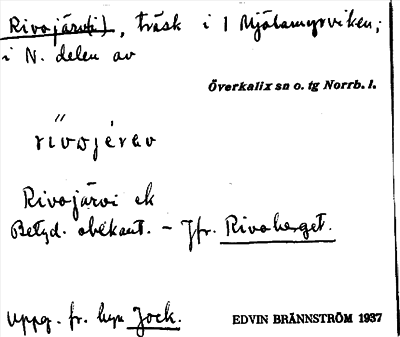 Rivojärv(i), träsk i 1 Mjölamyrviken;
i N. delen av
Överkalix sn o. tg Norrb. l.
rivojärav
Rivojärvi ek
Betyd. obekant. – Jfr. Rivoberget.
Uppg. fr. byn Jock.
EDVIN BRÄNNSTRÖM 1937